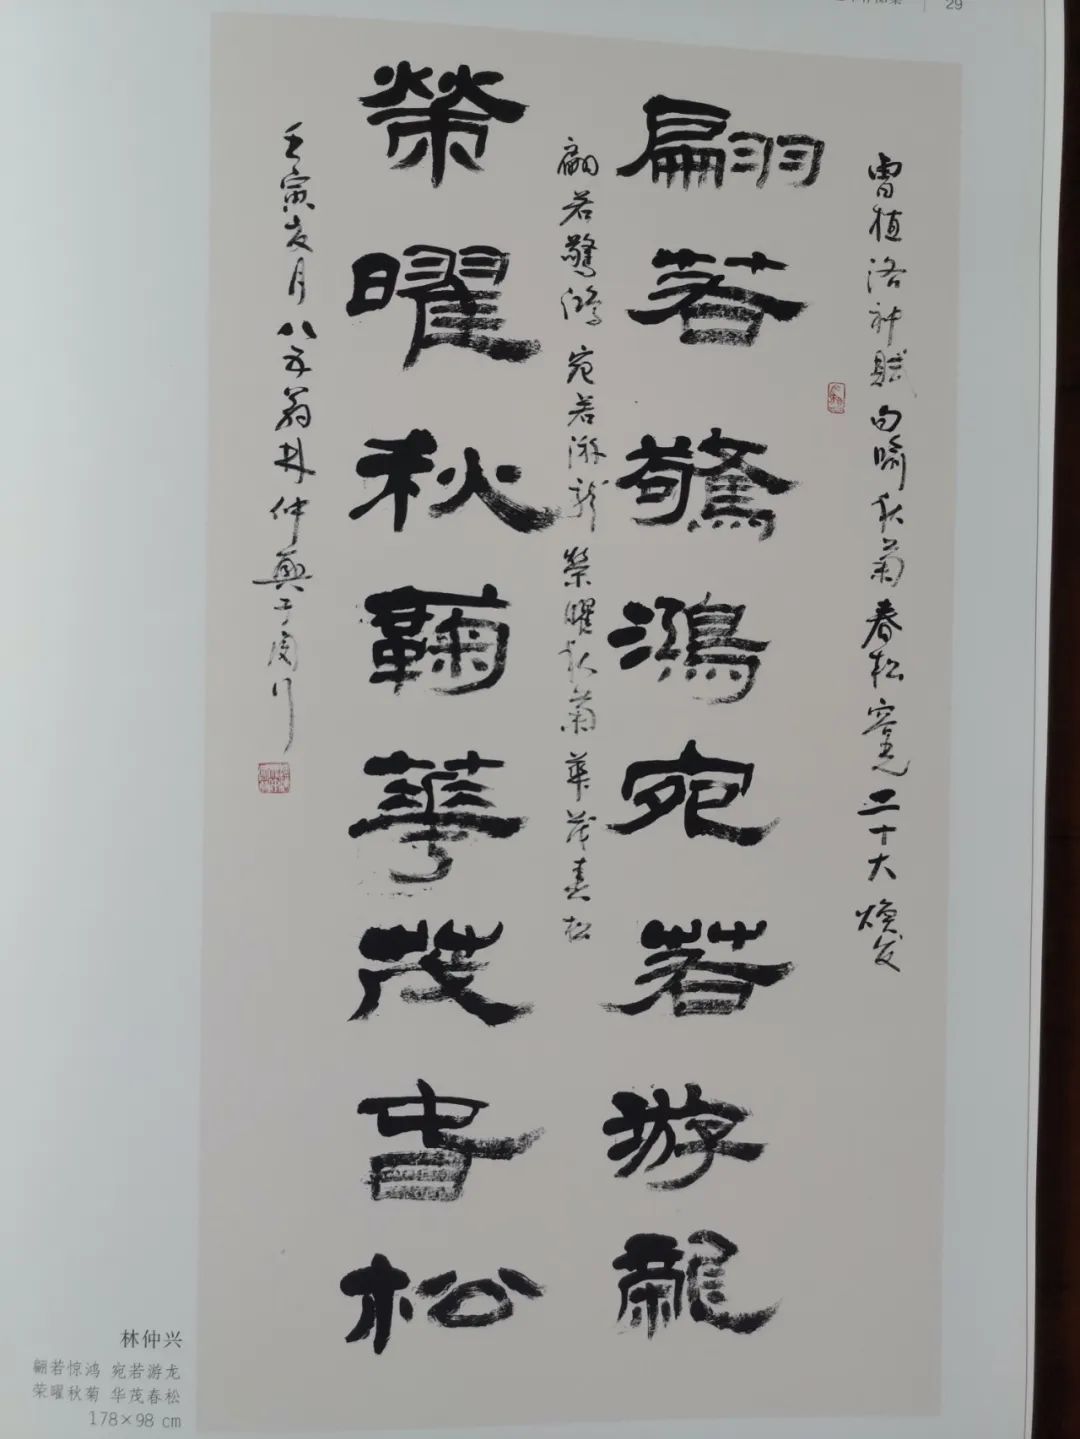 29
曹植洛神賦句喻秋菊春松竟見二十大煥发
翩若驚鴻宛若游龍
翩若驚鴻宛若游龍榮曜秋菊華茂春松
榮曜秋鞠華茂春松
壬寅友月八五翁林仲興于閔行
林仲兴
翩若惊鸿 宛若游龙
荣曜秋菊 华茂春松
178×98 cm